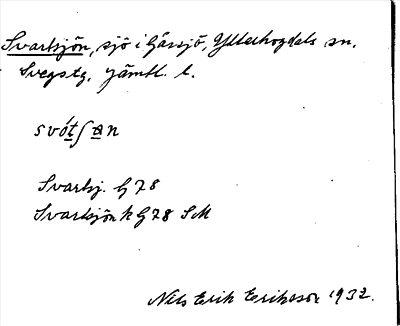 Svartsjön, sjö i Gåssjö, Ytterhogdals sn,
Svegs tg, Jämtl. l.
svót̲ʃa̲n
Svartsj. G 78
Svartsjön k G 78 SM
Nils Erik Eriksson 1932.